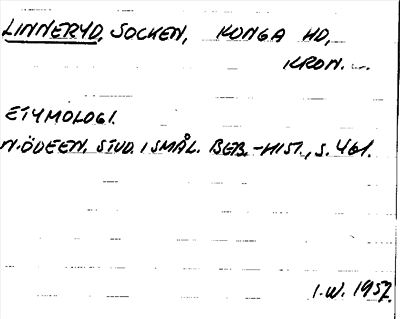 LINNERYD, SOCKEN, KONGA HD,
KRON.
ETYMOLOGI.
N. ÖDEEN. STUD. I SMÅL. BEB.-HIST., S. 461.
I.W. 1957.